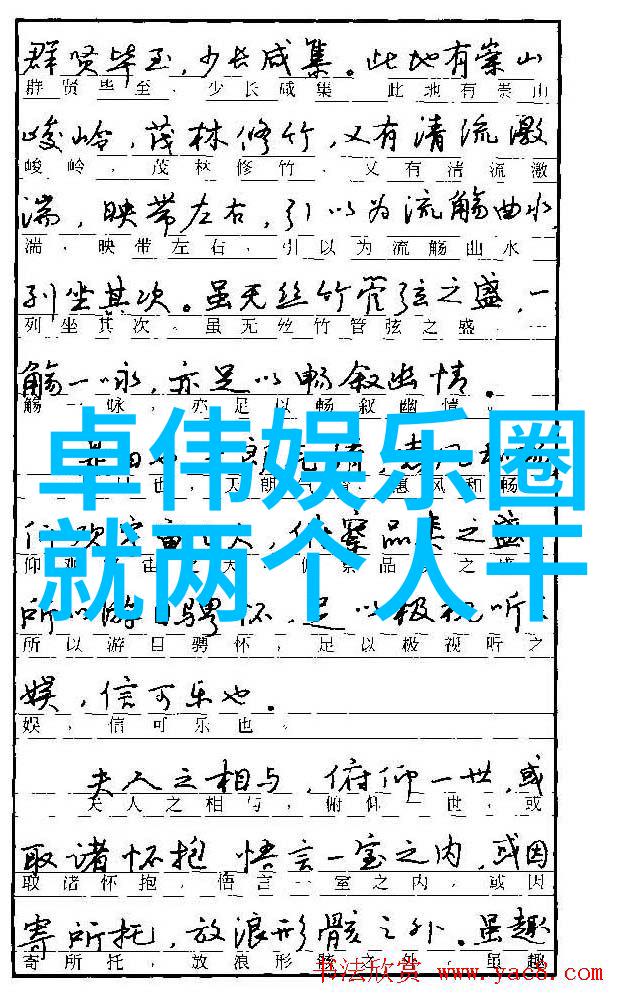 群贤毕至，少长咸集。此地有崇山
群贤毕至，少长咸集。此地有崇山
峻岭，茂林修竹，又有清流激
峻岭，茂林修竹，又有清流激
湍，映带左右，引以为流觞曲水，
湍，映带左右，引以为流觞曲水
列坐其次。虽无丝竹管弦之盛，一
列坐其次。虽无丝竹管弦之盛，一
觞一咏，亦足以畅叙幽情。
觞一咏，亦足以畅叙幽情。
卓伟娱乐圈
也，天朗 惠风和畅
就两个人干
仰观宇宙之大，俯察品类之盛
所以游目骋怀，足以极视听
所以游目骋怀，足以极视听之
娱，信可乐也。
娱，信可乐也。
夫人之相与，俯仰一世，或
夫人之相与，俯仰一世，或
取诸怀抱 悟言一室之内，或因
取诸怀抱，悟言一室之内，或因
寄所托，放浪形骸之外。虽趣
寄所托，放浪形骸之外。虽趣
书法欣赏 www.yac8.com